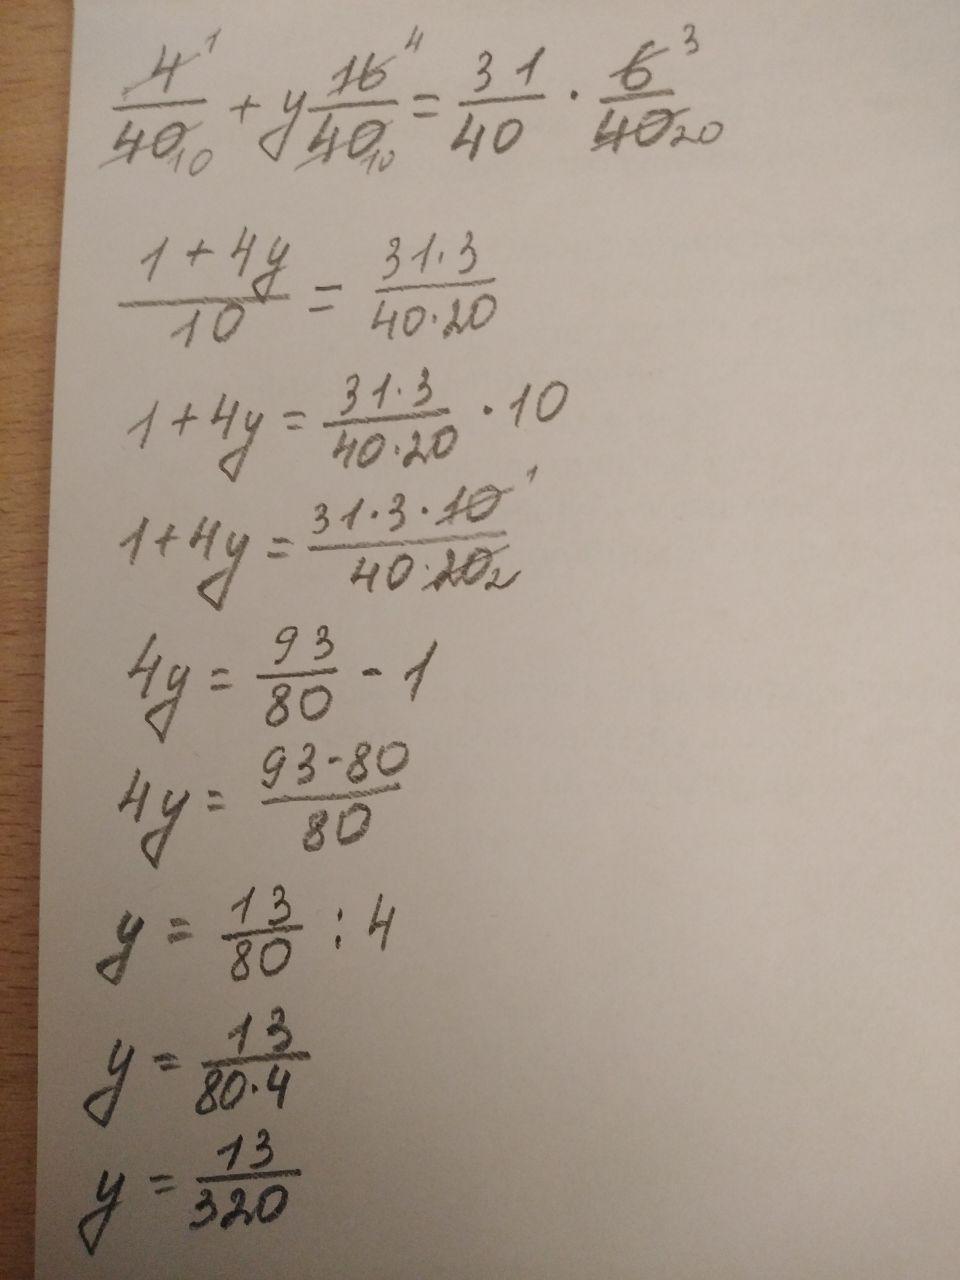 4/40 ¹ ₁₀ + y 16/40 ⁴ ₁₀ = 31/40 · 6/40 ³ ₂₀
(1 + 4y)/10 = (31·3)/(40·20)
1 + 4y = (31·3)/(40·20) · 10
1 + 4y = (31·3·10 ¹)/(40·20 ₂)
4y = 93/80 - 1
4y = (93-80)/80
y = 13/80 : 4
y = 13/(80·4)
y = 13/320